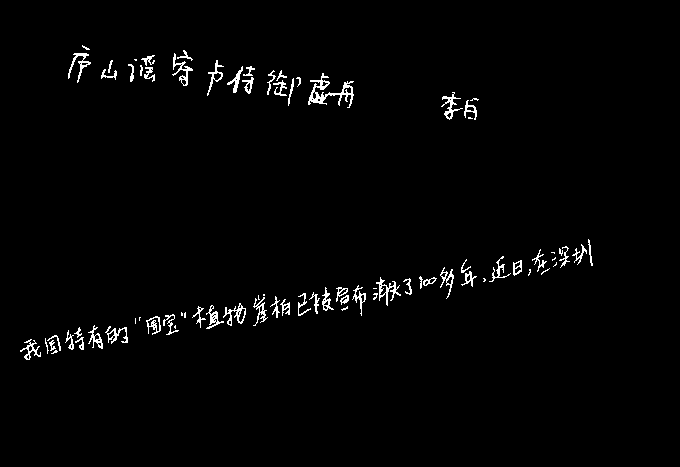 庐山谣寄卢侍御虚舟
李白
我国特有的"国宝"植物崖柏已被宣布消失了100多年,近日,在深圳